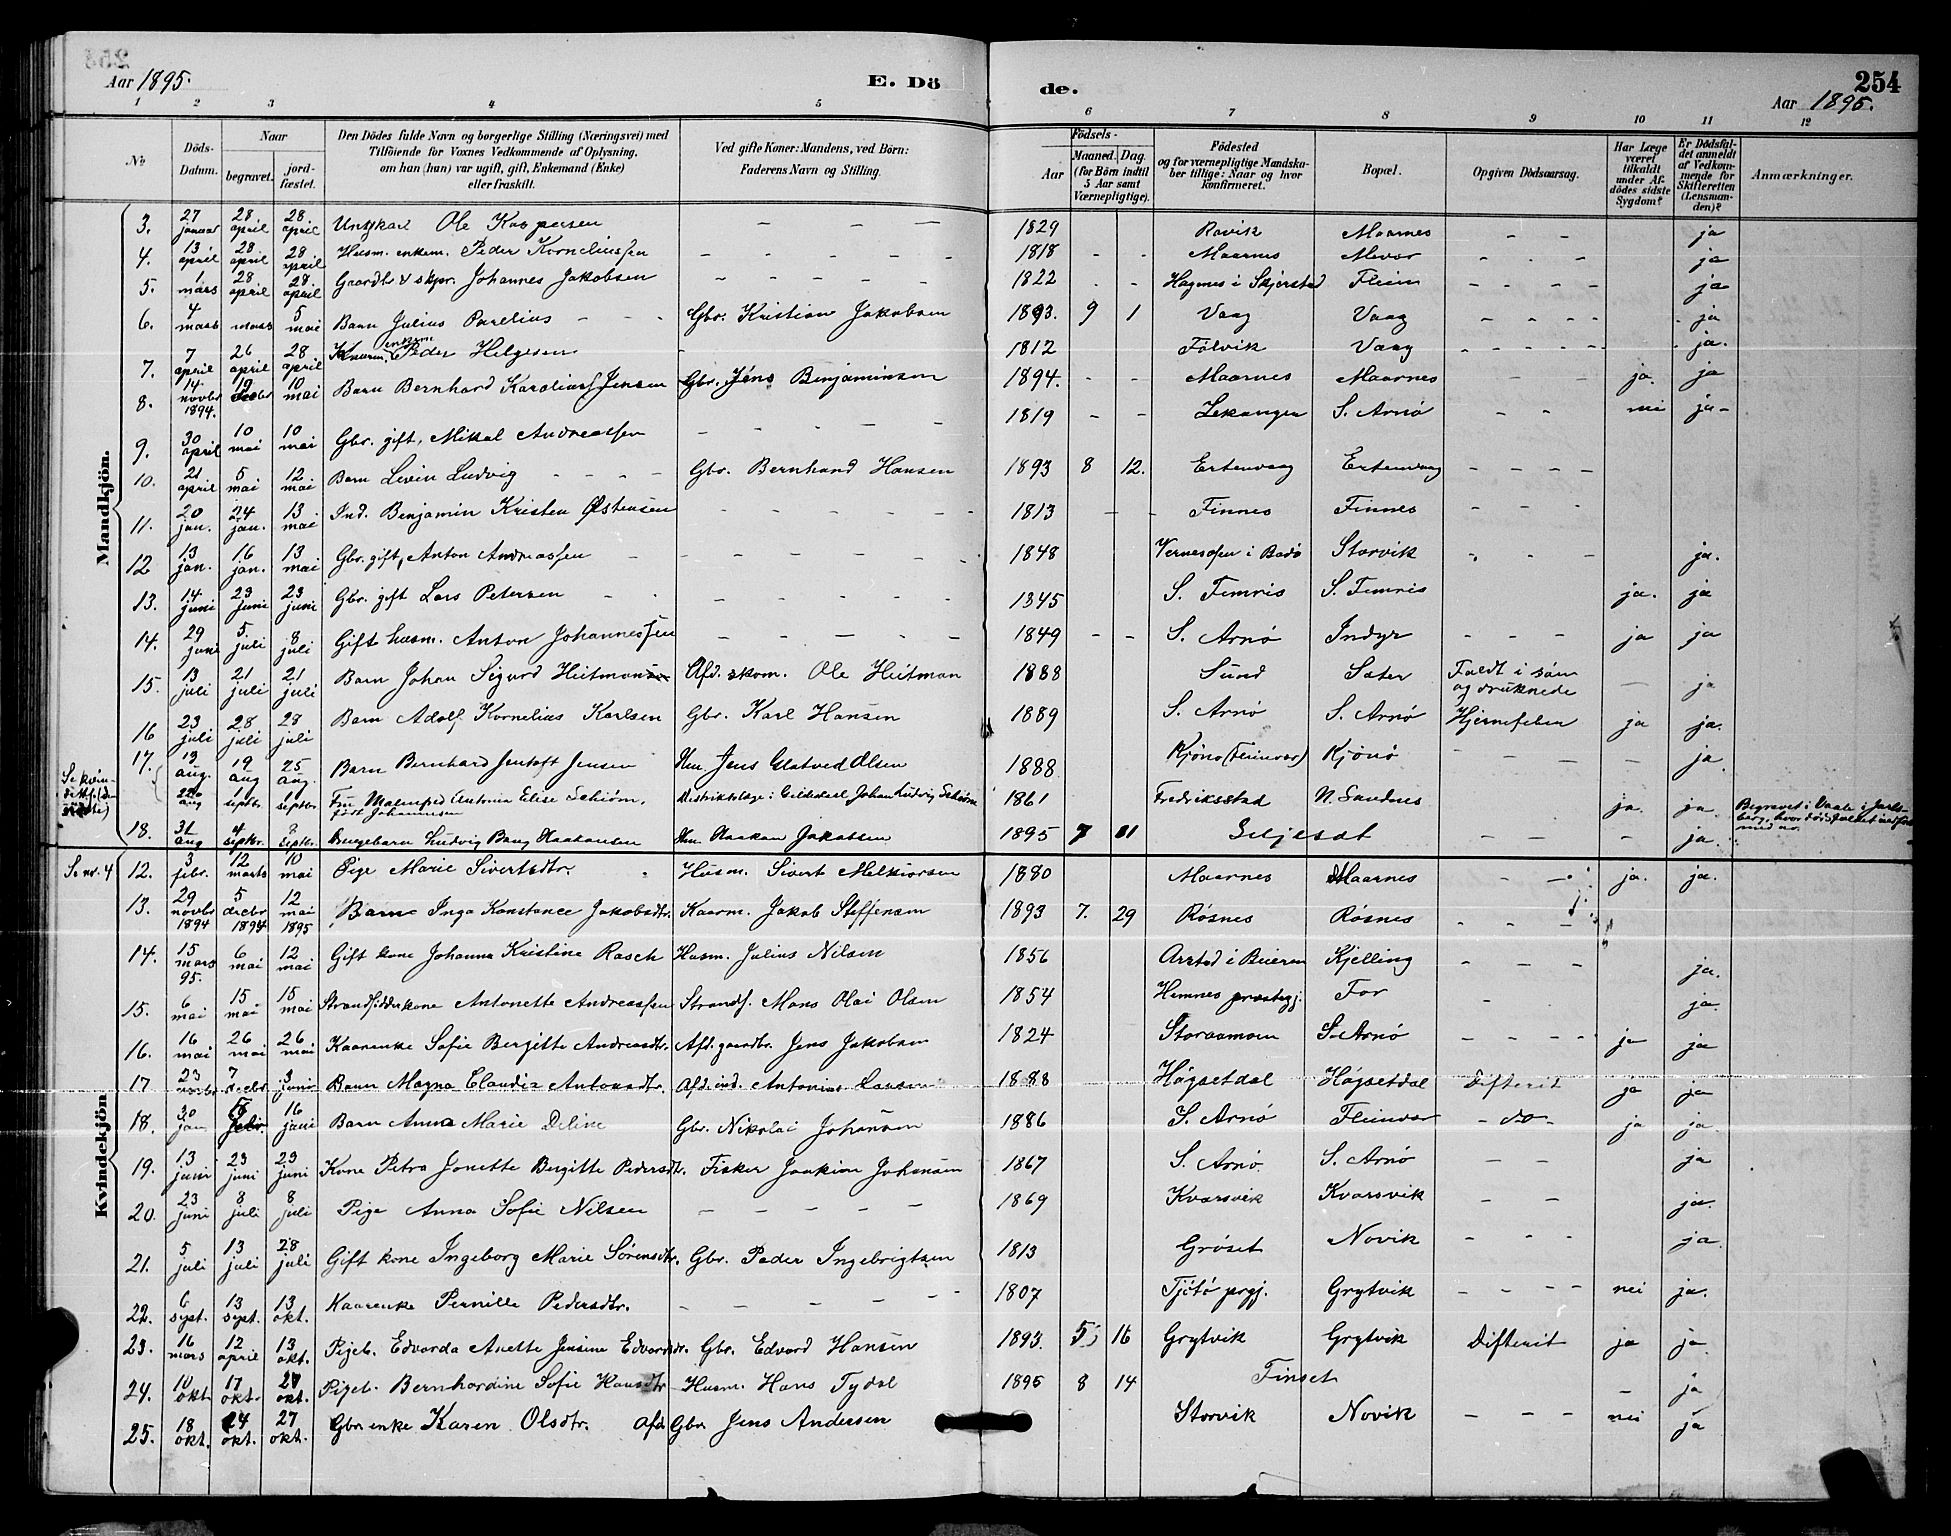 Aar 1895.
E. Dö
de.
254
Aar 1895.
1 2 3 4 5 6 7 8 9 10 11 12
No
Döds-Datum.
Naar
begravet.
jordfæstet.
Den Dödes fulde Navn og borgerlige Stilling (Næringsvei) med
Tilföiende for Voxnes Vedkommende af Oplysning,
om han (hun) var ugift, gift, Enkemand (Enke)
eller fraskilt.
Ved gifte Koner: Mandens, ved Börn:
Faderens Navn og Stilling.
Födsels-
Aar
Maaned. Dag.
(for Börn indtil
5 Aar samt
Værnepligtige).
Födested
og for værnepligtige Mandskaber tillige: Naar og hvor
konfirmeret.
Bopæl.
Opgiven Dödsaarsag.
Har Læge
været
tilkaldt
under Afdödes sidste
Sygdom?
Er Dödsfaldet anmeldt
af Vedkommende for
Skifteretten
(Lensmanden)?
Anmærkninger.
Mandkjön.
3. 27 januar 28 april 28 april Ungkarl Ole Kaspersen — — — 1829 Ravik Maarnes - - ja
4. 13 april 28 april 28 april Husm. enkem. Peder Korneliussen - - - 1818 - - Maarnes Mevær - - - ja
5. 1 mars 28 april 28 april Gaardbr & skpr. Johannes Jakobsen - - - 1822 - - Hagnes i Skjerstad Flein - - - - ja
6. 4 mars mars 5 mai Barn Julius Parelius - - - Gbr. Kristian Jakobsen 1893. 9 1 Vaag Vaag ja
7. 7 april 26 april 28 april enkem Peder Helgesen - 1812 Fölvik Vaag - - - - - ja.
8. 14 novbr 1894. 19 decbr 10 mai Barn Bernhard Karolius Jensen Gbr. Jens Benjaminsen 1894. - - Maarnes Maarnes - - ja. ja
9. 30 april 10 mai 10 mai Gbr. gift, Mikal Andreassen - - - - 1819 - - Lekanger S. Arnö - - nei ja -
10. 21 april 5 mai 12 mai Barn Levin Ludvig - - - - Gbr. Bernhard Hansen 1893 8 12. Ertenvaag Ertenvaag - - - -
11. 20 jan. 24 jan. 13 mai Ind. Benjamin Kristen Østensen - - - - 1813 - - Finnes Finnes - - -
12 13 jan. 16 jan. 13 mai Gbr. gift, Anton Andreassen - - - - 1848 i Bodö Storvik - - - ja.
13. 14 juni 23 juni 23 juni Gbr. gift Lars Petersen - - - - 1845 S. Femris S. Femris ja. ja
14. 29 juni 5 juli 8 juli Gift husm. Anton Johannessen - - - - 1849 - - S. Arnö Indyr - - - ja ja
15. 13 juli 21 juli 21 juli Barn Johan Sigurd Heitmansen Afd. skom. Ole Heitman 1888 Sund Sæter Faldt i söen
og druknede — ja
16 23 juli 28 juli 28 juli Barn Adolf Kornelius Karlsen Gbr. Karl Hansen 1889 S. Arnö S. Arnö Hjernefeber ja ja.
17. 13 aug. 19 aug 25 aug. Barn Bernhard Jentoft Jensen Jens Olsen 1888 Kjönö (Fleinvær) Kjönö - - - ja.
22 aug 1 septbr 1 septbr. Fru Antonia Elise Schiöm, Distriktslæge i Gildeskaal Johan Ludvig Schiöm 1861 Fredriksstad N. Sandnes ja. ja. Begravet i Vaale i Jarlsberg,
født Johannesen
18. 31 aug 4 septbr. septbr. Drengebarn Ludvig Bang Haakonsen Haakon Jakobsen 1895 7 Seljeset - - - ja.
Kvindekjön
Se nr. 4 12. 3 febr. 12 marts 10 mai Pige Marie Sivertsdtr. Husm. Sivert Melkiorsen 1880 Maarnes Maarnes - - ja. ja.
13. 29 novbr 1894 5 decbr 1894 12 mai 1895 Barn Inga Konstance Jakobsdtr. Kaarm. Jakob Steffensen 1893 7. 29 Røsnes Røsnes - - -
14. 15 mars 95. 6 mai 12 mai Gift kone Johanna Kristine Rasch Husm. Julius Nilsen 1856 Arstad i Beieren Kjelling - - - ja.
15. 6 mai 15 mai 15 mai Strandsidderkone Antonette Andreassen Strands. Mons Olai Olsen 1854 Hemnes prestegj. For - ja.
16. 16 mai 26 mai 26 mai Kaarenke Sofie Bergitte Andreasdtr. Afd. gaardbr. Jens Jakobsen 1824 S. Arnö - - - - ja ja
17 23 novbr 7 decbr 3 juni Barn Magna Claudia Antonsdtr. Afd. ind. Antonius Larsen 1888 Høgsetdal Høgsetdal Difterit ja ja
18. 30 jan febr. 16 juni Barn Anna Marie Deline Gbr. Nikolai Johansen 1886 S. Arnö Fleinvær - do - ja ja.
19. 13 juni 23 juni 23 juni Kone Petra Jonette Bergitte Pedersdtr. Fisker Joakim Johansen 1867 S. Arnö. S. Arnö - - ja
20. 23 juni 8 juli 8 juli Pige Anna Sofie Nilsen - - - - 1869 Kvarsvik Kvarsvik - - ja.
21. 5 juli 13 juli 28 juli Gift kone Ingeborg Marie Sørensdtr. Gbr. Peder Ingebrigtsen 1813 Grøset Novik - - - ja.
22. 6 sept. 13 sept. 13 okt. Kaarenke Pernille Pedersdtr. - - - - 1807 Tjøtø prgj. Grytvik - - - - nei ja.
23. 16 mars 12 april 13 okt. Pigeb. Edvarda Anette Jensine Edvardsdtr. Gbr. Edvard Hansen 1893. 5 16 Grytvik Grytvik Difterit ja ja.
24. 10 okt. 17 okt. 27 okt. Pigeb. Bernhardine Sofie Hansdtr Husm. Hans Tydal 1895 8 14 Finset - ja
25. 18 okt. 24 okt. 27 okt. Gbr enke Karen Olsdtr. Afd. Gbr. Jens Andersen Storvik Novik - - - nei ja